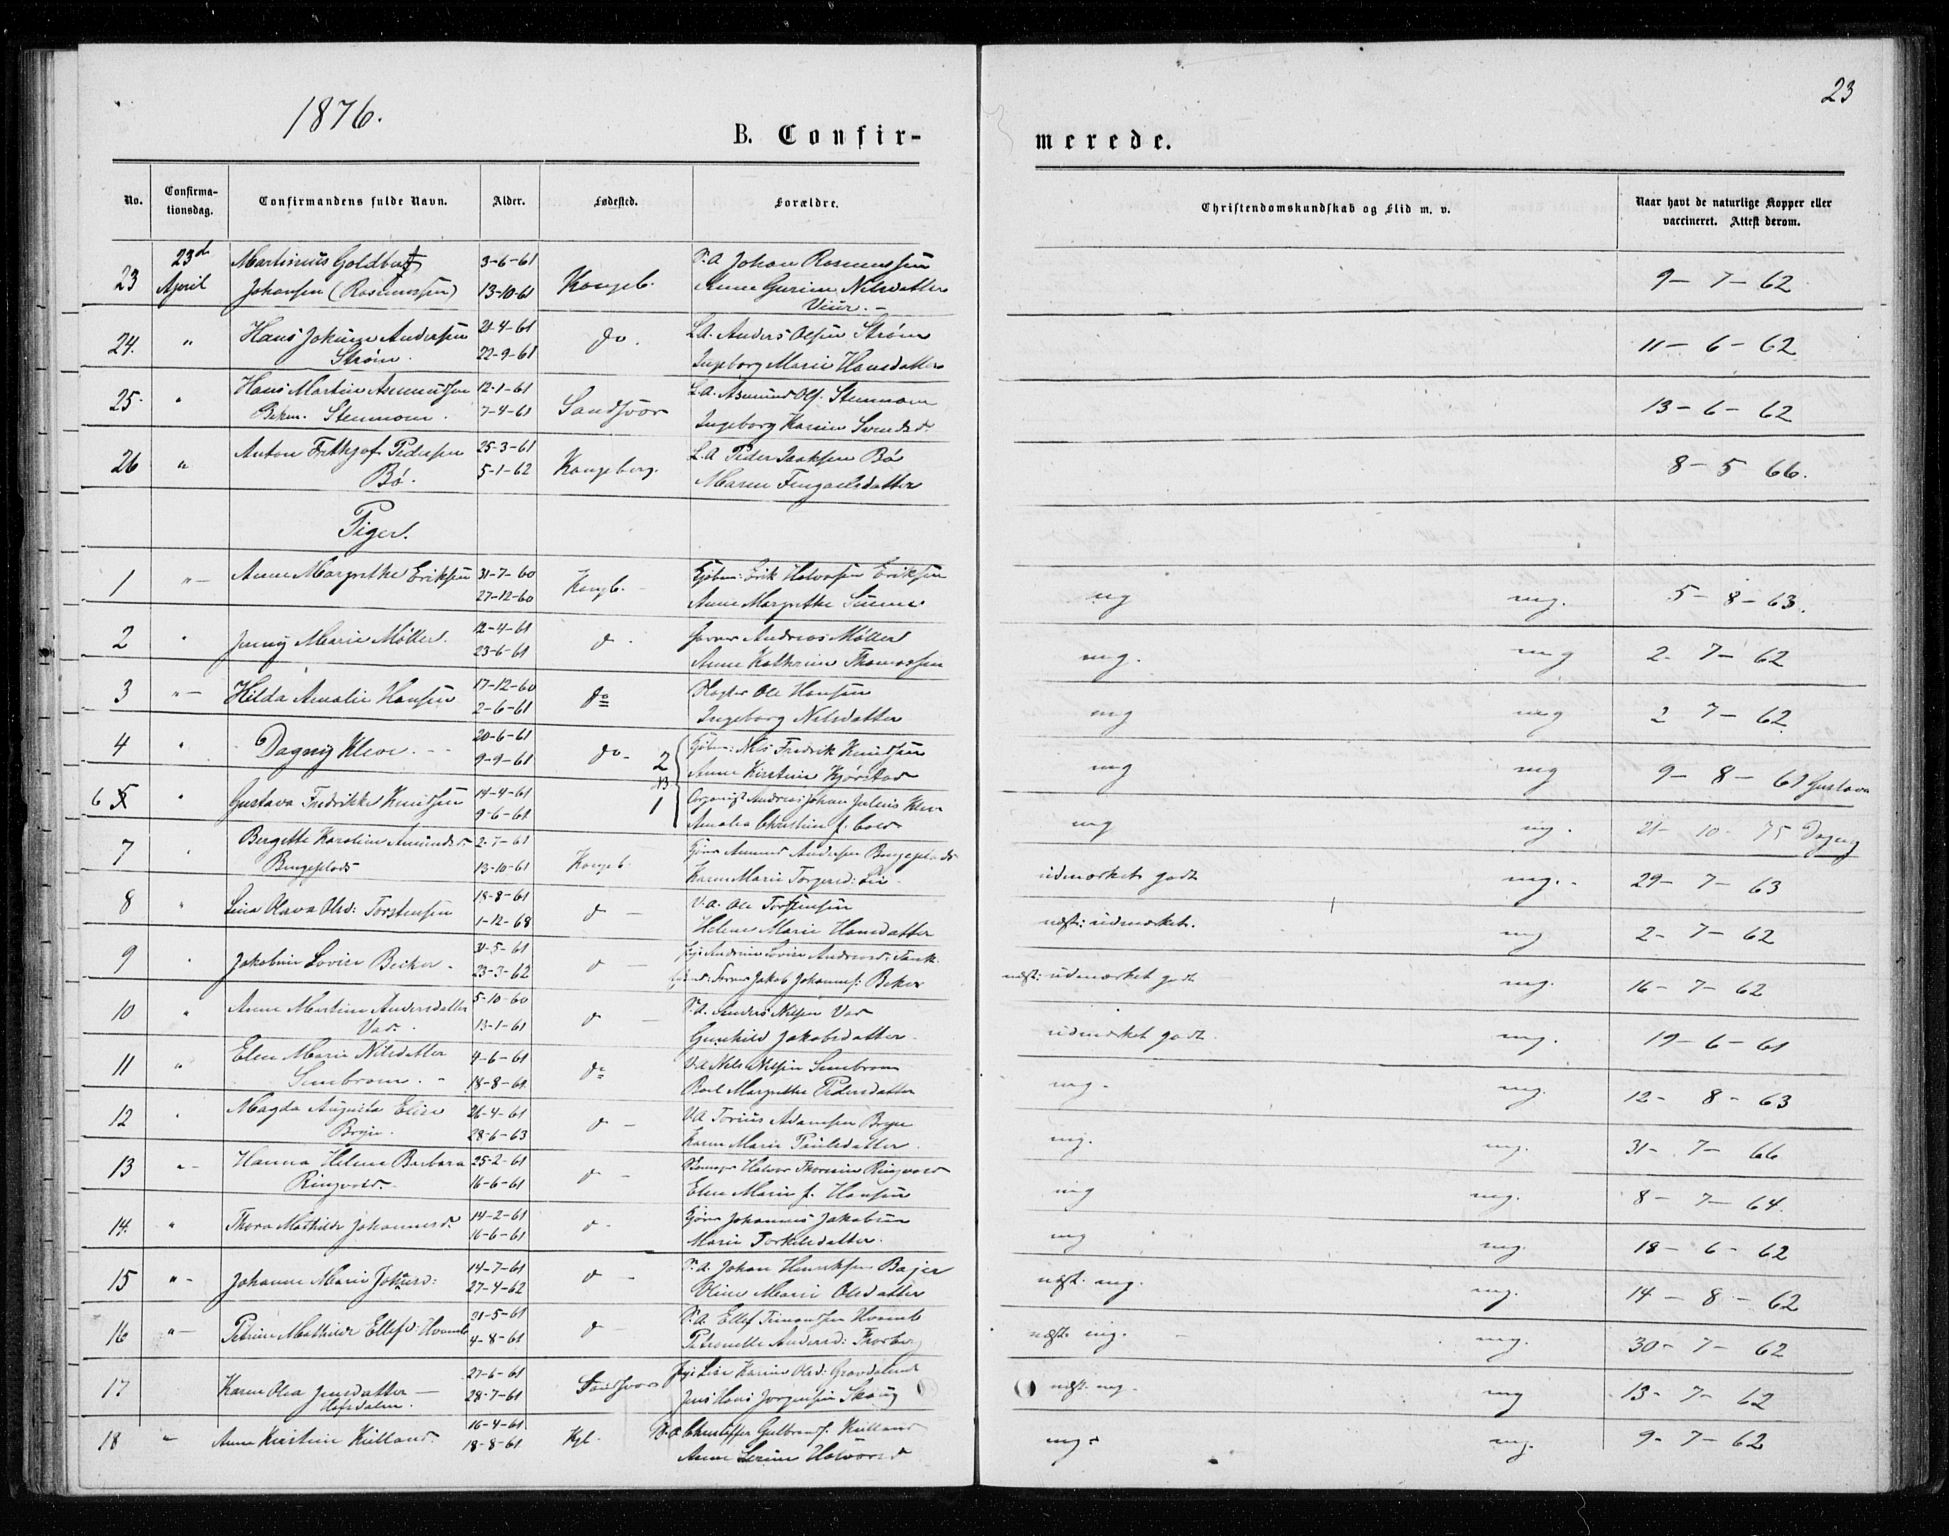 1876.
23
B. Confir-
merede.
No.
Confirma-
tionsdag.
Confirmandens fulde Navn.
Alder.
Fødested.
Forældre.
Christendomskundskab og Flid m. v.
Naar havt de naturlige Kopper eller
vaccineret. Attest derom.
23 23de Martinius Goldbu 3-6-61 Johan Rasmussen
April Johansen (Rasmussen) 13-10-61 Kongsb. Anne Gurine Nilsdatter 9-7-62
24. " Hans Johan Andersen 21-4-61 do. L.A. Anders Olsen Strøm
Strøm. 22-9-61 Ingeborg Marie Hansdatter 11-6-62
25. " Hans Martin Asmundsen 12-1-61 Sandsvær L.A. Asmund Ols. Stenmoen
Stenmoen. 7-4-61 Ingeborg Karine Svendsd. 13-6-62
26 " Anton Frithjof Pedersen 25-3-61 Kongsberg. L.A Peder Isaksen Bø
Bø. 5-1-62 Maren Fingalsdatter 8-5 66.
Piger.
1 "- Anne Margrethe Eriksen 31-7-60 Kongb. Erik Halvorsen Eriksen
27-12-60 Anne Margrethe mg mg. 5-8-63.
2 " Jenny Marie Møller. 12-4-61 do. Andreas Møller
23-6-61 Anne Kathrine Thomassen mg. mg 2-7-62
3 "- Hilda Amalie Hansen 17-12-60 do Ole Hansen
2-6-61 Ingeborg Nilsdatter mg mg 2 7-62
4 " Dagny Kleve. 20-6-61 do- 2 Nils Fredrik Knudsen
9-9-61 Anne Kirstine Kjørstad mg mg 9-8-61 Gustava
6 5 " Gustava Fredrikke Knudsen 14-4-61 1 Organist Andreas Johan Julius Kleve
9-6-61 Amalia Christine f. mg mg. 21-10-75 Dagny
7 " Bergitte Karoline Amundsd. 2-7-61 Kongsb. Amund Andersen Bergeplads
Bergeplads 13-10-61 Karen Marie Torgersd. udmærket godt mg.- 29-7-63
8 " Lina Olava Olsd: Torstensen 18-8-61 do - V.A. Ole Torstensen
1-12-68 Helene Marie Hansdatter næst: udmærket. mg 2-7-62
9 " Jakobine Lovise Becker. 31-5-61 do - Andrine Lovise Andreasd.
23-3-62 Jakob Johannes: Beker næst: udmærket godt mg. 16-7-62
10 " Anne Martine Andersdatter 5-10-60 do - Anders Nilsen Vad
Vad. 13-1-61 Gunhild Jakobsdatter udmærket godt mg. 19-6-61
11 " Elen Marie Nilsdatter 4-6-61 do Nils Nilsen
18-8-61 Margrethe Pedersdatter mg. mg. 12-8-63
12 " Magda Augusta Elise 26-4-61 do - V.A Adamsen
28-6-63 Karen Marie Paulsdatter mg. mg. 31-7-66
13 "- Hanna Helene Barbara 25-2-61 do - Halvor Ringvold
Ringvold. 16-6-61 Elen Marie f. Hansen mg mg. 8-7-64.
14. " Thora Mathilde Johannesd. 14-2-61 do. Johannes Jakobsen
16-6-61 Marie Torkildsdatter. mg mg. 18-6-62
15 "- Johanne Marie Johansd: 14-7-61 do - Johan Henriksen Bajer
27-4-62 Oline Marie Olsdatter næst. mg. mg. 14-8-62
16 "- Petrine Mathilde Ellefsd. 21-5-61 do - Ellef Simonsen
4-8-61 Petronelle Andersd: næst mg. mg. 30-7-62
17 Karen Olea Jensdatter - 27-6-61 Sandsvær Lise Karine Olsd: Gravdalen
Hofsdalen. 28-7-61 Jens Hans Jørgensen Skaug næst. mg. mg 13-7-62
18 " Anne Kirstine Kulland. 16-4-61 Kgb. Christoffer Gulbrans. Kulland
18-8-61 Anne Halvorsd mg. mg. 9-7-62